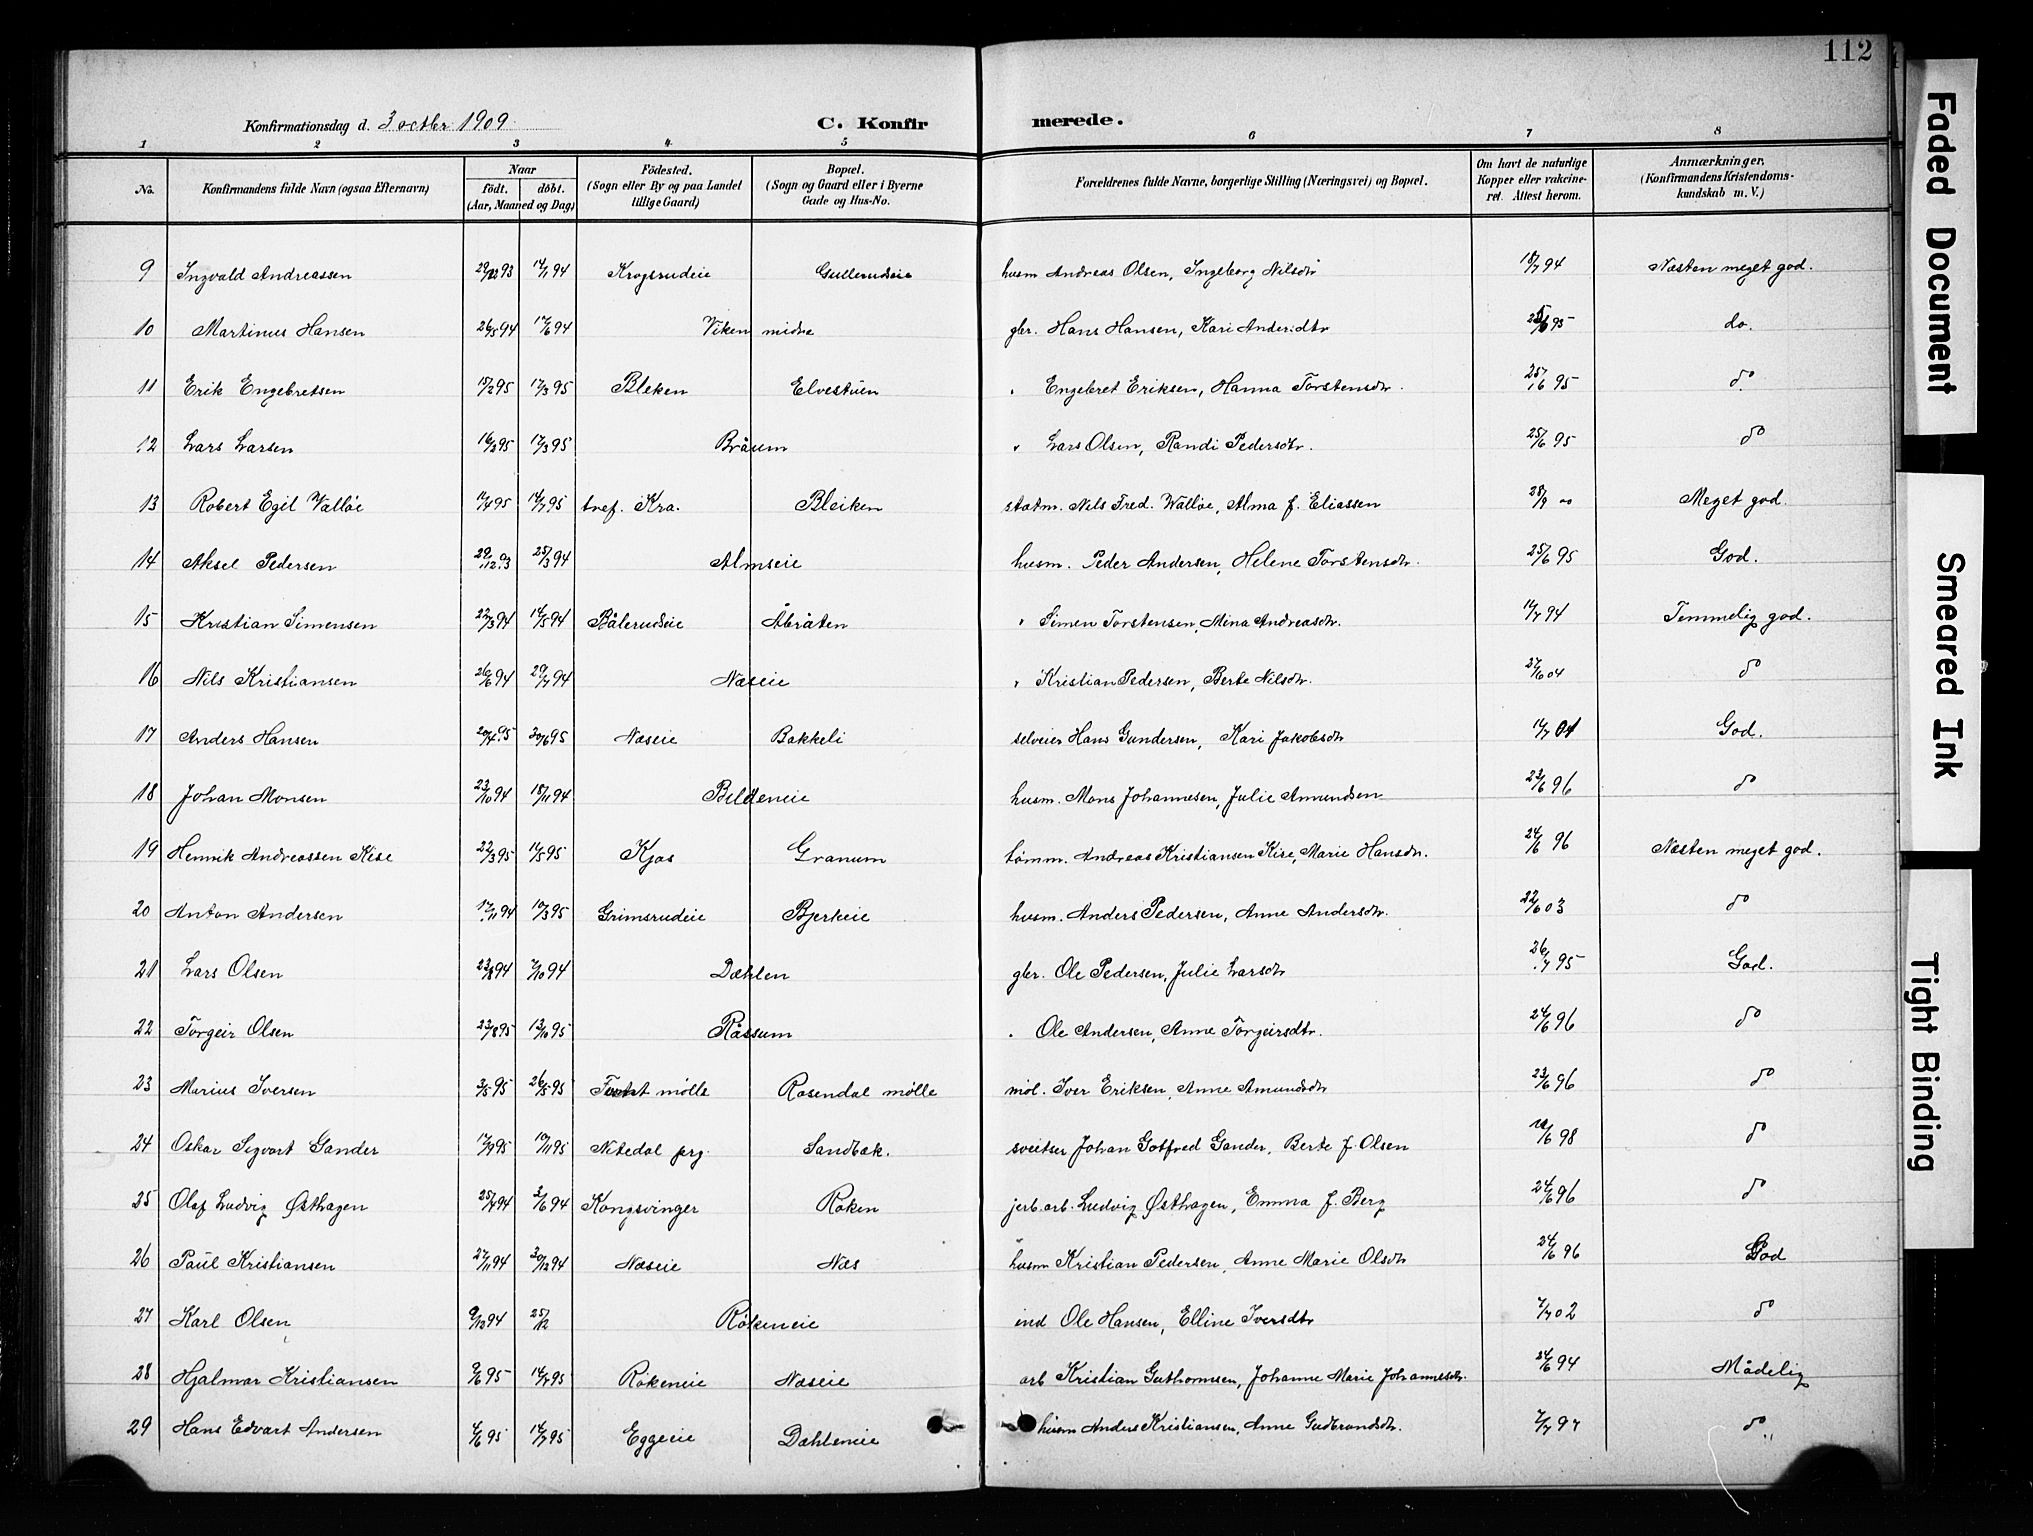 112
Konfirmationsdag d. 3 octbr 1909 C. Konfirmerede.
1 2 3 4 5 6 7 8
No. Konfirmandens fulde Navn (ogsaa Efternavn) Naar født. døbt. (Aar, Maaned og Dag) Fødested. (Sogn eller By og paa Landet tillige Gaard) Bopæl. (Sogn og Gaard eller i Byerne Gade og Hus-No. Forældrenes fulde Navne, borgerlige Stilling (Næringsvei) og Bopæl. Om havt de naturlige Kopper eller vakcineret. Attest herom. Anmærkninger. (Konfirmandens Kristendomskundskab m. V.)
9 Ingvald Andreassen 29/12 93 14/1 94 Krogsrudeie Gullerudeie husm Andreas Olsen, Ingeborg Nilsdtr 18/7 94 Næsten meget god.
10 Martinus Hansen 26/5 94 17/6 94 Viken midre gbr. Hans Hansen, Kari Andersdtr 25/6 95 do.
11 Erik Engebretsen 15/2 95 17/3 95 Bleken Elvestuen " Engebret Eriksen, Hanna Torstensdtr. 25/6 95 do
12 Lars Larsen 16/2 95 17/3 95 Bråum " Lars Olsen, Randi Pedersdtr. 25/6 95 do
13 Robert Egil Walløe 17/4 95 14/7 95 tref. Kra. Bleiken statm. Nils Fred. Walløe, Alma f. Eliassen 28/9 00 Meget god.
14 Aksel Pedersen 29/12 93 25/3 94 Almseie husm. Peder Andersen, Helene Torstensdtr. 25/6 95 God.
15 Kristian Simensen 22/3 94 14/5 94 Bålerudeie Åbråten " Simen Torstensen, Mina Andreasdtr. 17/7 94 Temmelig god.
16 Nils Kristiansen 26/6 94 29/7 94 Næseie " Kristian Pedersen, Berte Nilsdtr. 27/6 04 do
17 Anders Hansen 20/4 95 30/6 95 Næseie Bakkeli selveier Hans Gundersen, Kari Jakobsdtr 14/7 04 God.
18 Johan Monsen 23/10 94 18/11 94 Bildeneie husm. Mons Johannesen, Julie Amundsen 23/6 96 do
19 Henrik Andreassen Kise 22/3 95 14/5 95 Kjos Granum tømm. Andreas Kristiansen Kise, Marie Hansdtr. 24/6 96 Næsten meget god.
20 Anton Andersen 17/11 94 10/3 95 Grimsrudeie Bjerkeie husm. Anders Pedersen, Anne Andersdtr. 22/6 03 do
21 Lars Olsen 23/8 94 7/10 94 Dæhlen gbr. Ole Pedersen, Julie Larsdtr 26/7 95 God.
22 Torgeir Olsen 23/8 95 13/10 95 Råssum " Ole Andersen, Anne Torgeirsdtr. 24/6 96 do
23 Marius Iversen 3/5 95 26/5 95 mølle Rosendal mølle møl. Iver Eriksen, Anne Amundsdtr 23/6 96 do
24 Oskar Sigvart Gander 17/9 95 10/11 95 Nitedal prg. Sandbæk. sveitser Johan Gotfred Gander, Berte f. Olsen /6 98 do
25 Olaf Ludvig Østhagen 25/4 94 3/6 94 Kongsvinger Røken jerb.arb. Ludvig Østhagen, Emma f. Berg 24/6 96 do
26 Paul Kristiansen 27/11 94 30/12 94 Næseie Næs husm Kristian Pedersen, Anne Marie Olsdtr 24/6 96 God
27 Karl Olsen 9/12 94 25/12 Røkeneie ind Ole Hansen, Elline Iversdtr 7/7 02 do
28 Hjalmar Kristiansen 9/6 95 14/7 95 Røkeneie Næseie arb Kristian Guthormsen, Johanne Marie Johannesdtr. 24/6 94 Mådelig
29 Hans Edvart Andersen 4/6 95 14/7 95 Eggeeie Dæhleneie husm Anders Kristiansen, Anne Gudbrandsdtr. 7/7 97 do
Faded Document
Smeared Ink
Tight Binding